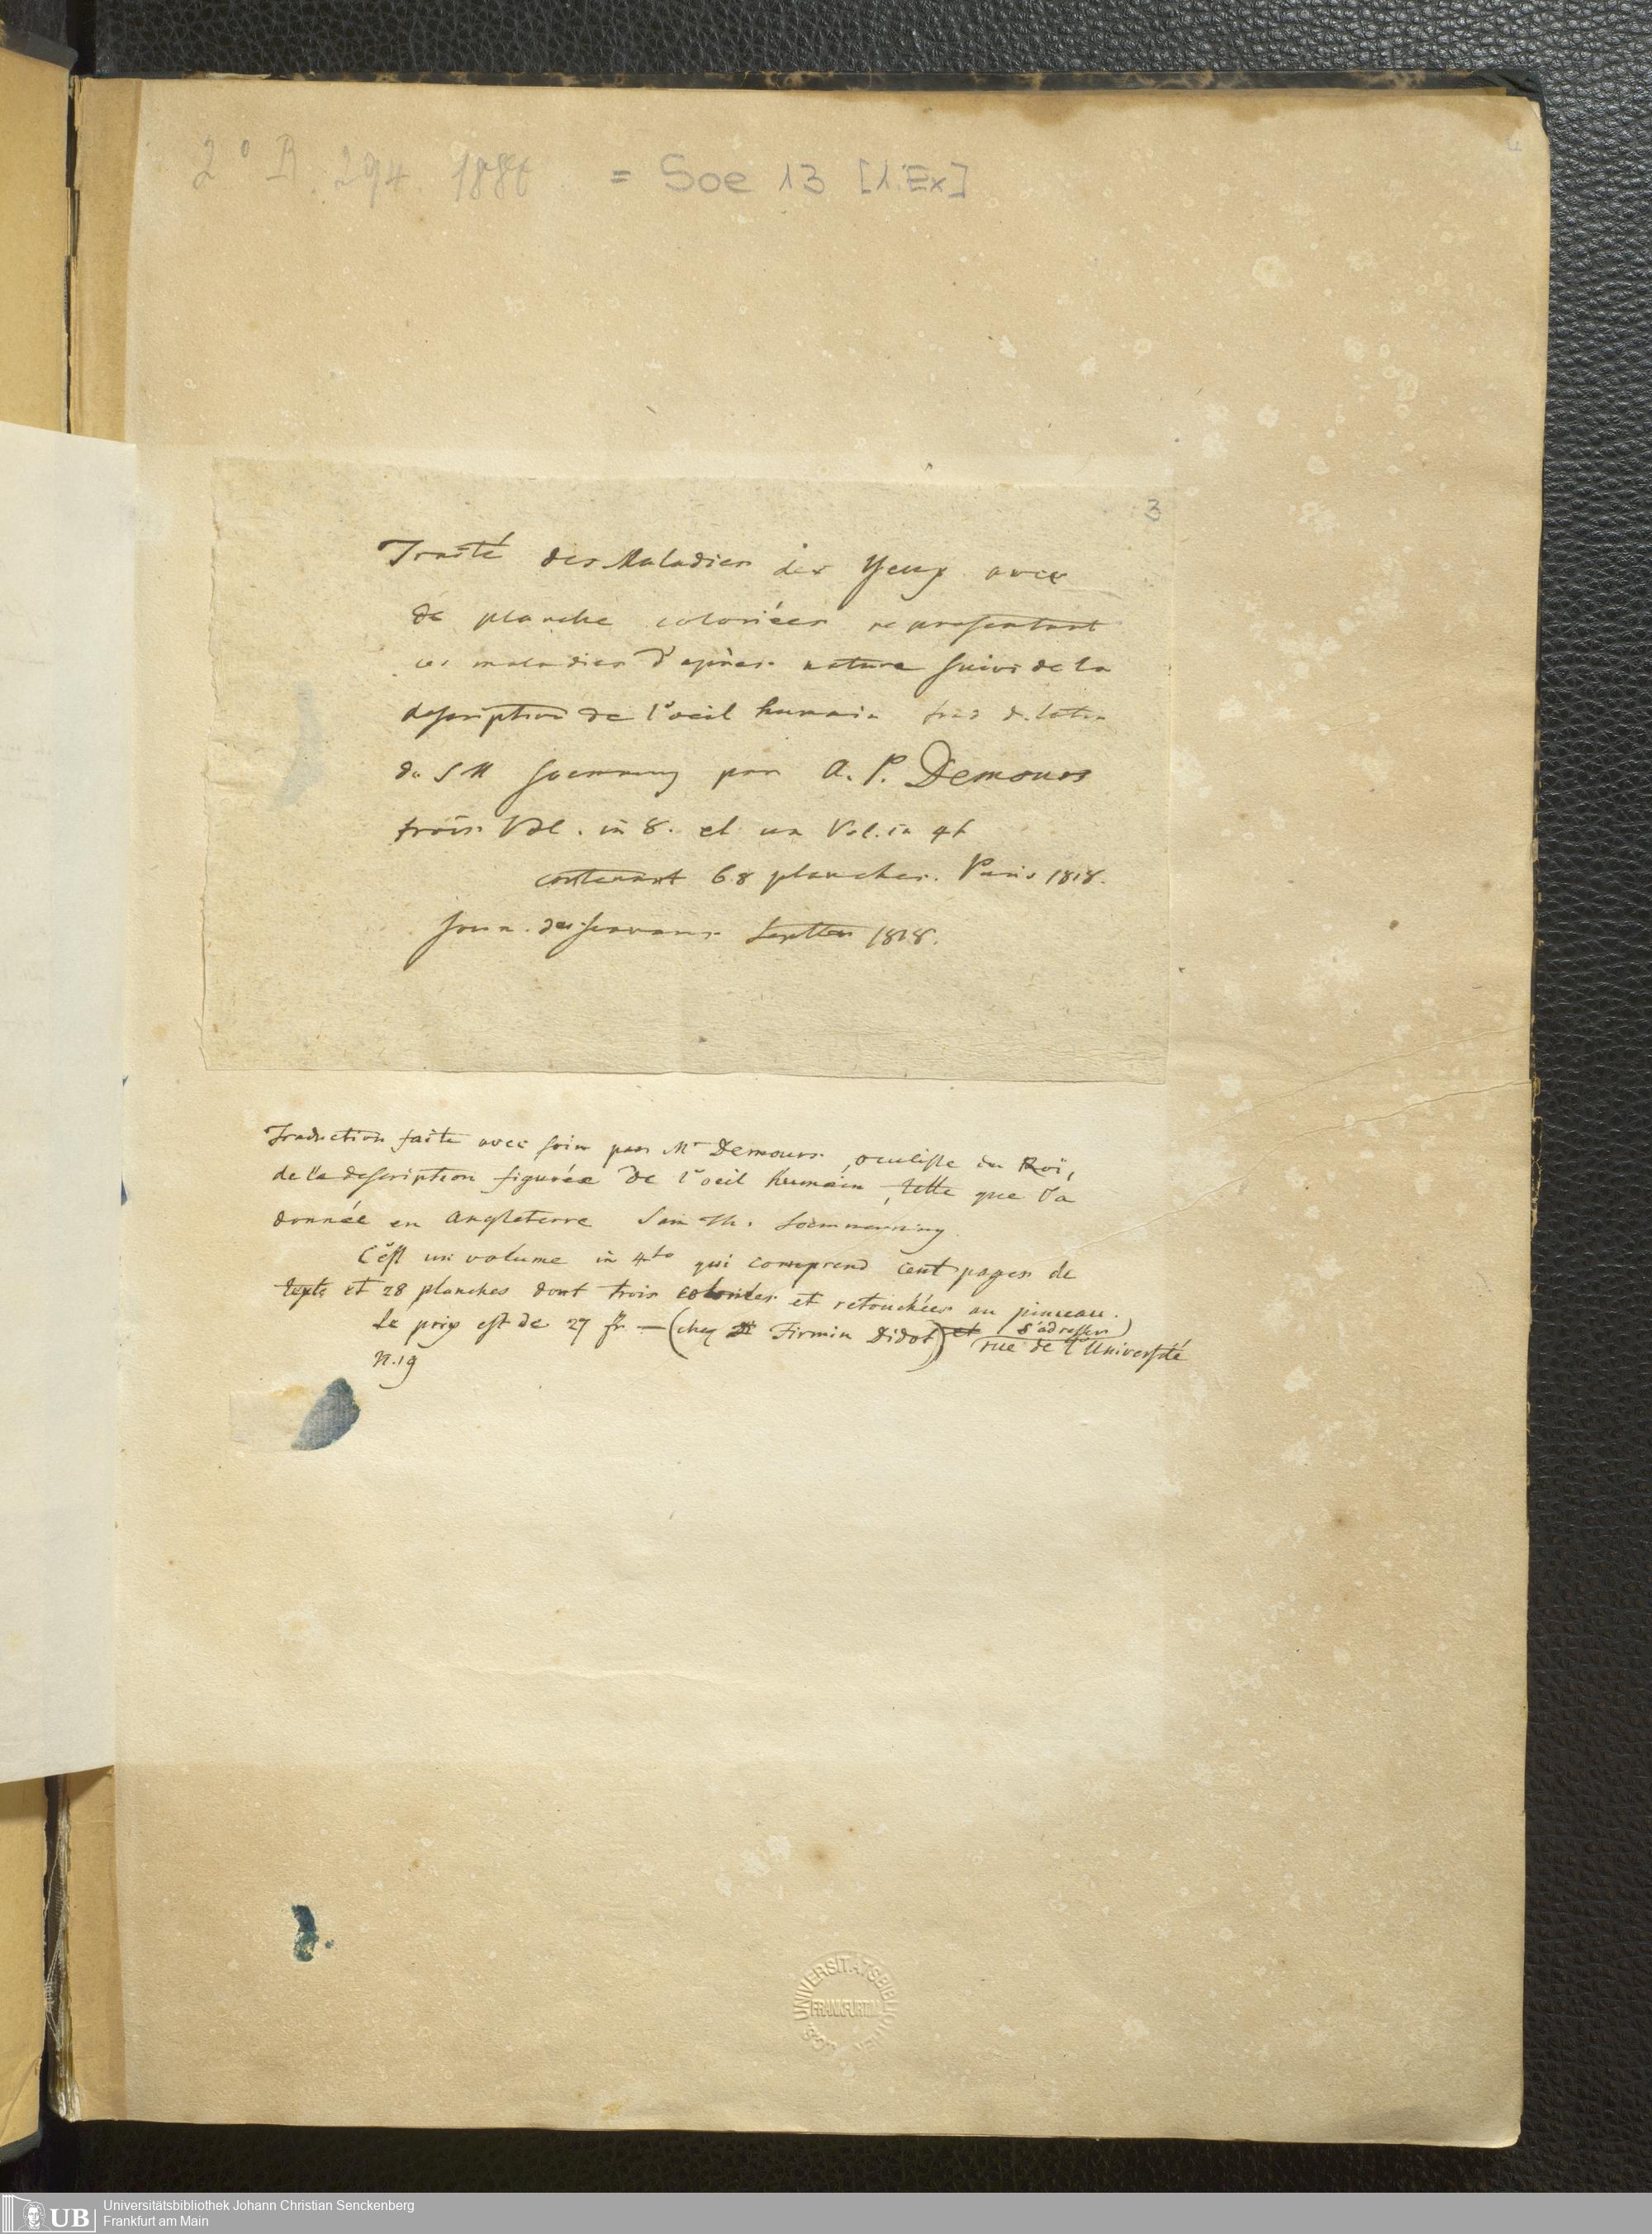 2° B. 294. 1886 = Soe 13 [1. Ex]
4
3
Traité des Maladies des Yeux avec
de planche coloriées representant
ces maladies d'après nature suivi de la
description de l'oeil humain trad d. latin
du S Th Soemmerring par A. P. Demours
trois Vol. in 8. et un Vol. in 4t
contenant 68 planches. Paris 1818.
Journ. des savans Septber 1818.
Traduction faite avec soin par Mr Demours, oculiste du Roi,
de la description figurée de l'oeil humain, telle que l'a
donnée en Angleterre Sam Th. Soemmerring.
C'est un volume in 4to qui comprend cent pages de
texte et 28 planches dont trois coloriées et retouchées au pinceau.
Le prix est de 27 fr. — (chez Firmin Didot) et (s'adresser)
rue de l'Université
N. 19
UNIVERSITÄTSBIBLIOTHEK
FRANKFURT/M.
UB
Universitätsbibliothek Johann Christian Senckenberg
Frankfurt am Main